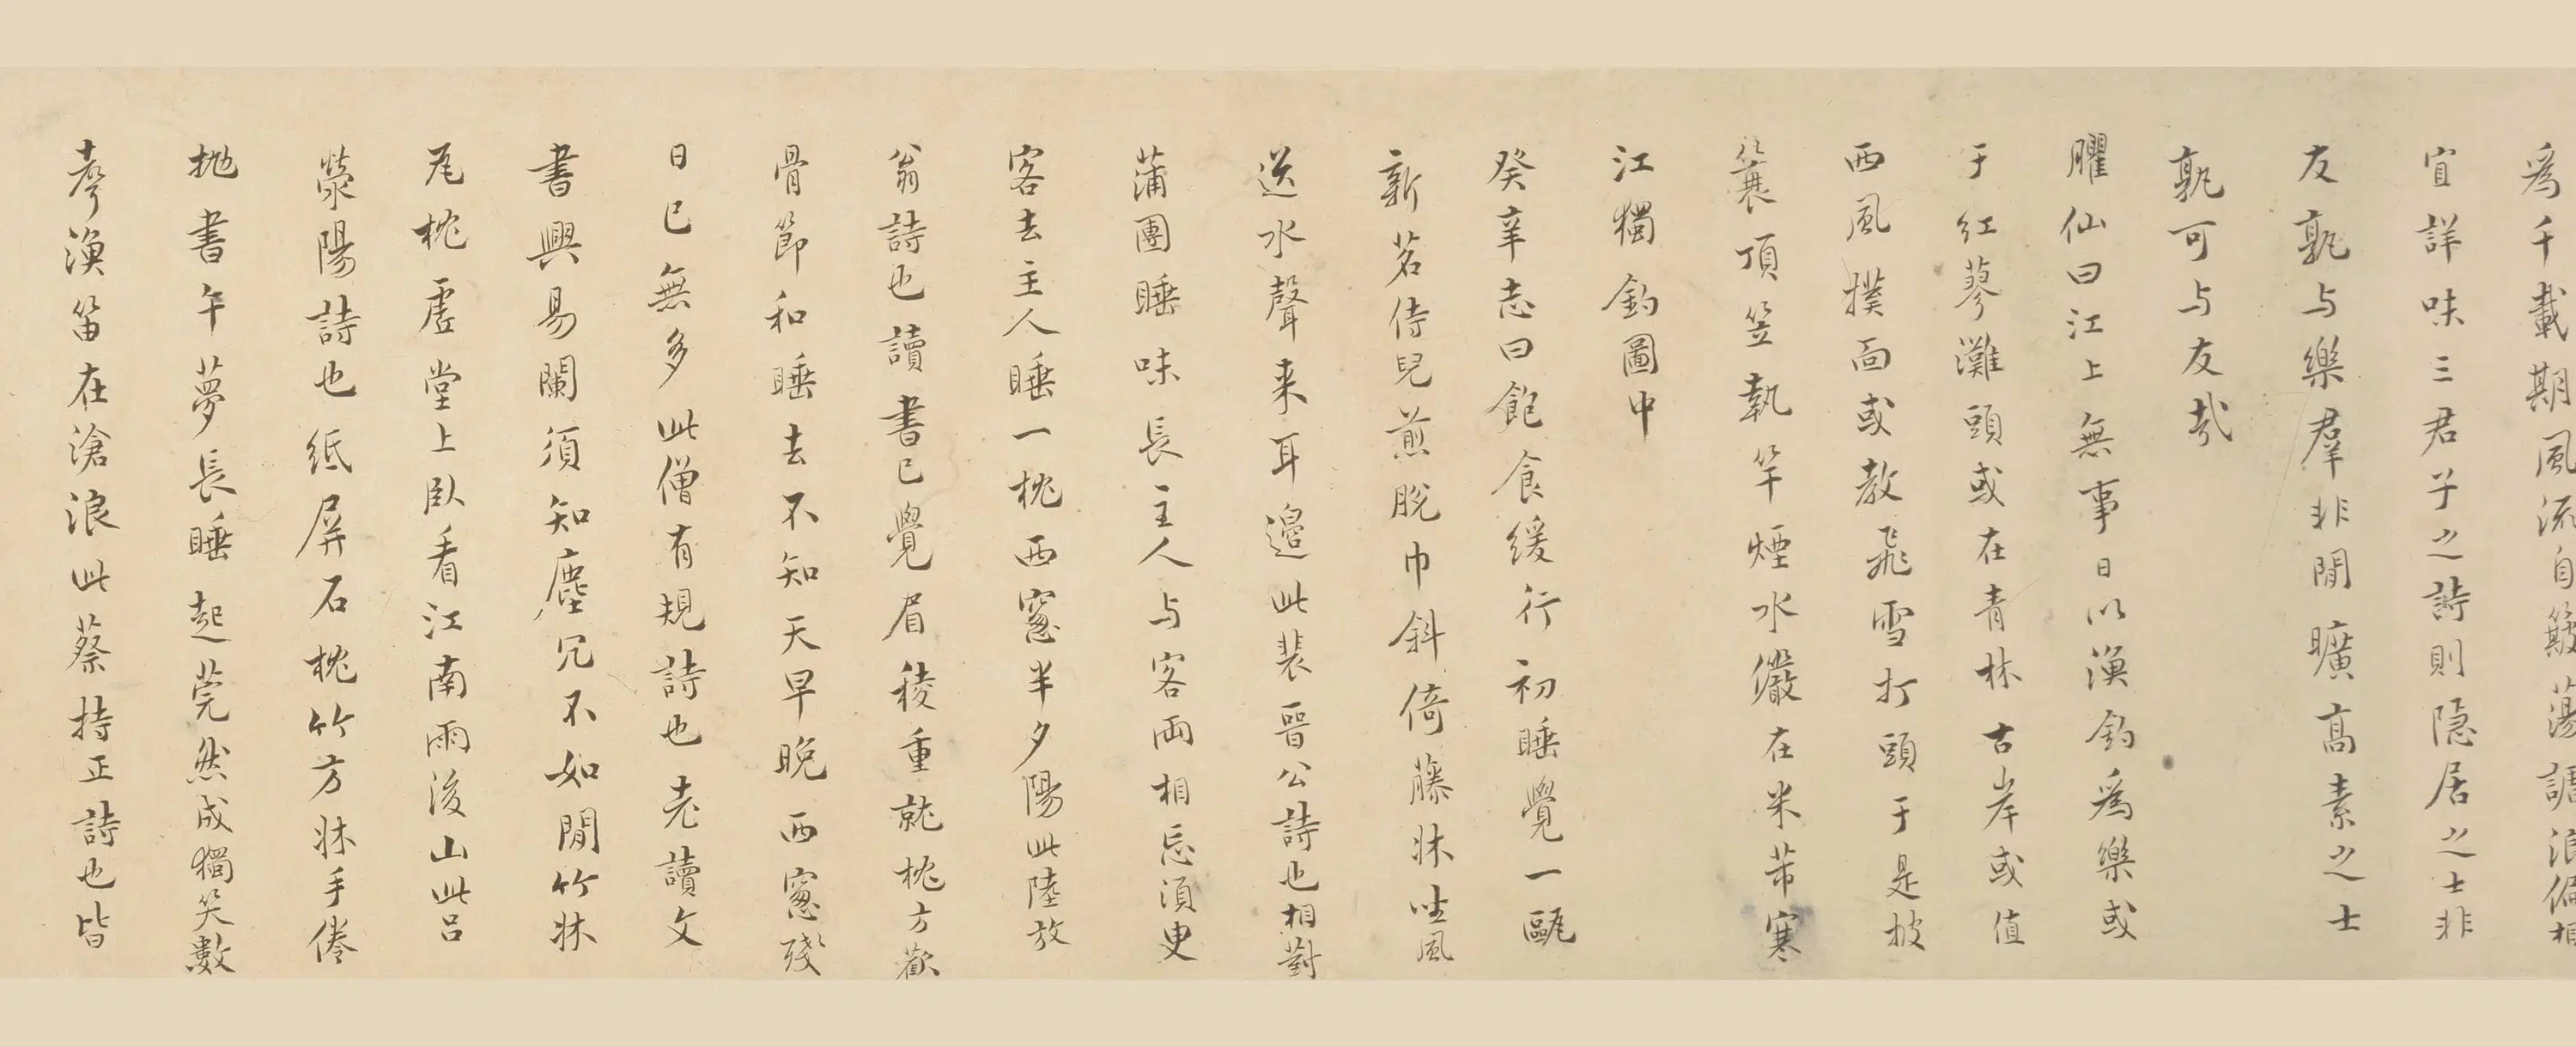 爲千載期風流自簸蕩謔浪偏相
宜詳味三君子之詩則隠居之士非
友孰与樂羣非閒曠高素之士
孰可与友哉
臞仙曰江上無事日以漁釣爲樂或
于紅蓼灘頭或在青林古岸或值
西風撲面或教飛雪打頭于是披
簑頂笠執竿煙水儼在米芾寒
江獨釣圖中
癸辛志曰飽食緩行初睡覺一甌
新茗侍兒煎脱巾斜倚藤牀坐風
送水聲来耳邉此裴晉公詩也相對
蒲團睡味長主人与客兩相忘湏臾
客去主人睡一枕西窻半夕陽此陸放
翁詩也讀書已覺眉稜重就枕方歡
骨節和睡去不知天早晚西窻殘
日已無多此僧有規詩也老讀文
書興易闌須知塵冗不如閒竹牀
瓦枕虛堂上臥看江南雨後山此吕
滎陽詩也纸屏石枕竹方牀手倦
抛書午夢長睡起莞然成獨笑數
聲漁笛在滄浪此蔡持正詩也皆